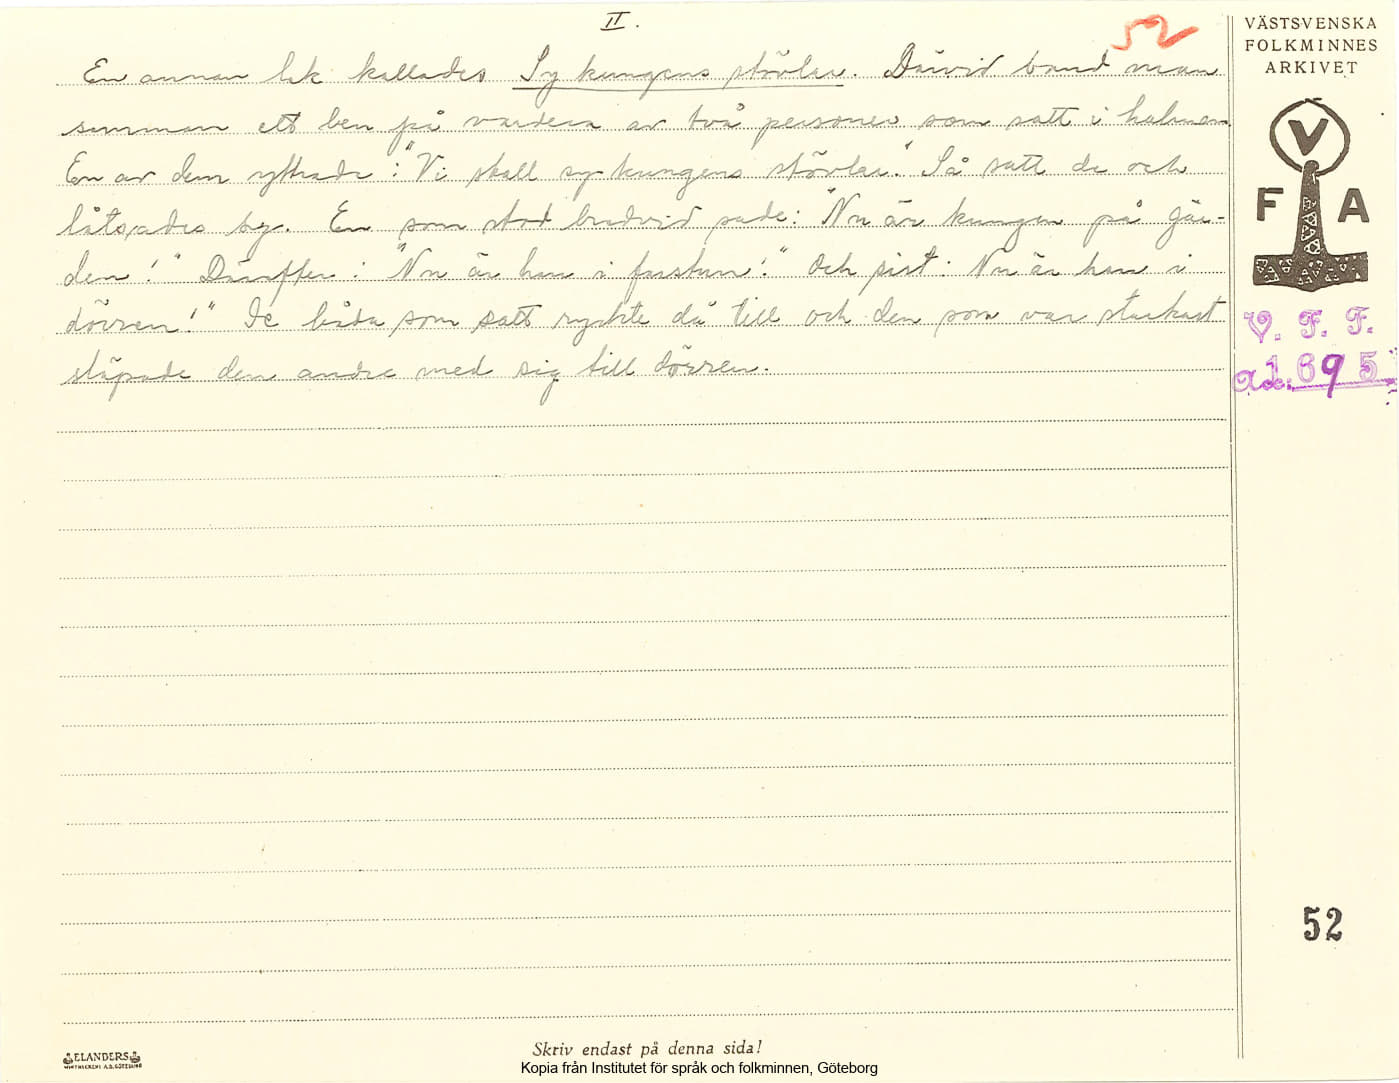 II.
52
En annan lek kallades Sy kungens stövlar. Därvid band man
samman ett ben på vardera av två personer som satt i halmen.
En av dem yttrade: "Vi skall sy kungens stövlar." Så satt de och
låtsades sy. En som stod bredvid sade: "Nu är kungen på går-
den!" Därefter: "Nu är han i farstun!" Och sist: Nu är han i
dörren!" De båda som satt ryckte då till och den som var starkast
släpade den andre med sig till dörren.
VÄSTSVENSKA
FOLKMINNES
ARKIVET
V
F A
V. F. F.
1695
52
ELANDERS
Skriv endast på denna sida!
Kopia från Institutet för språk och folkminnen, Göteborg